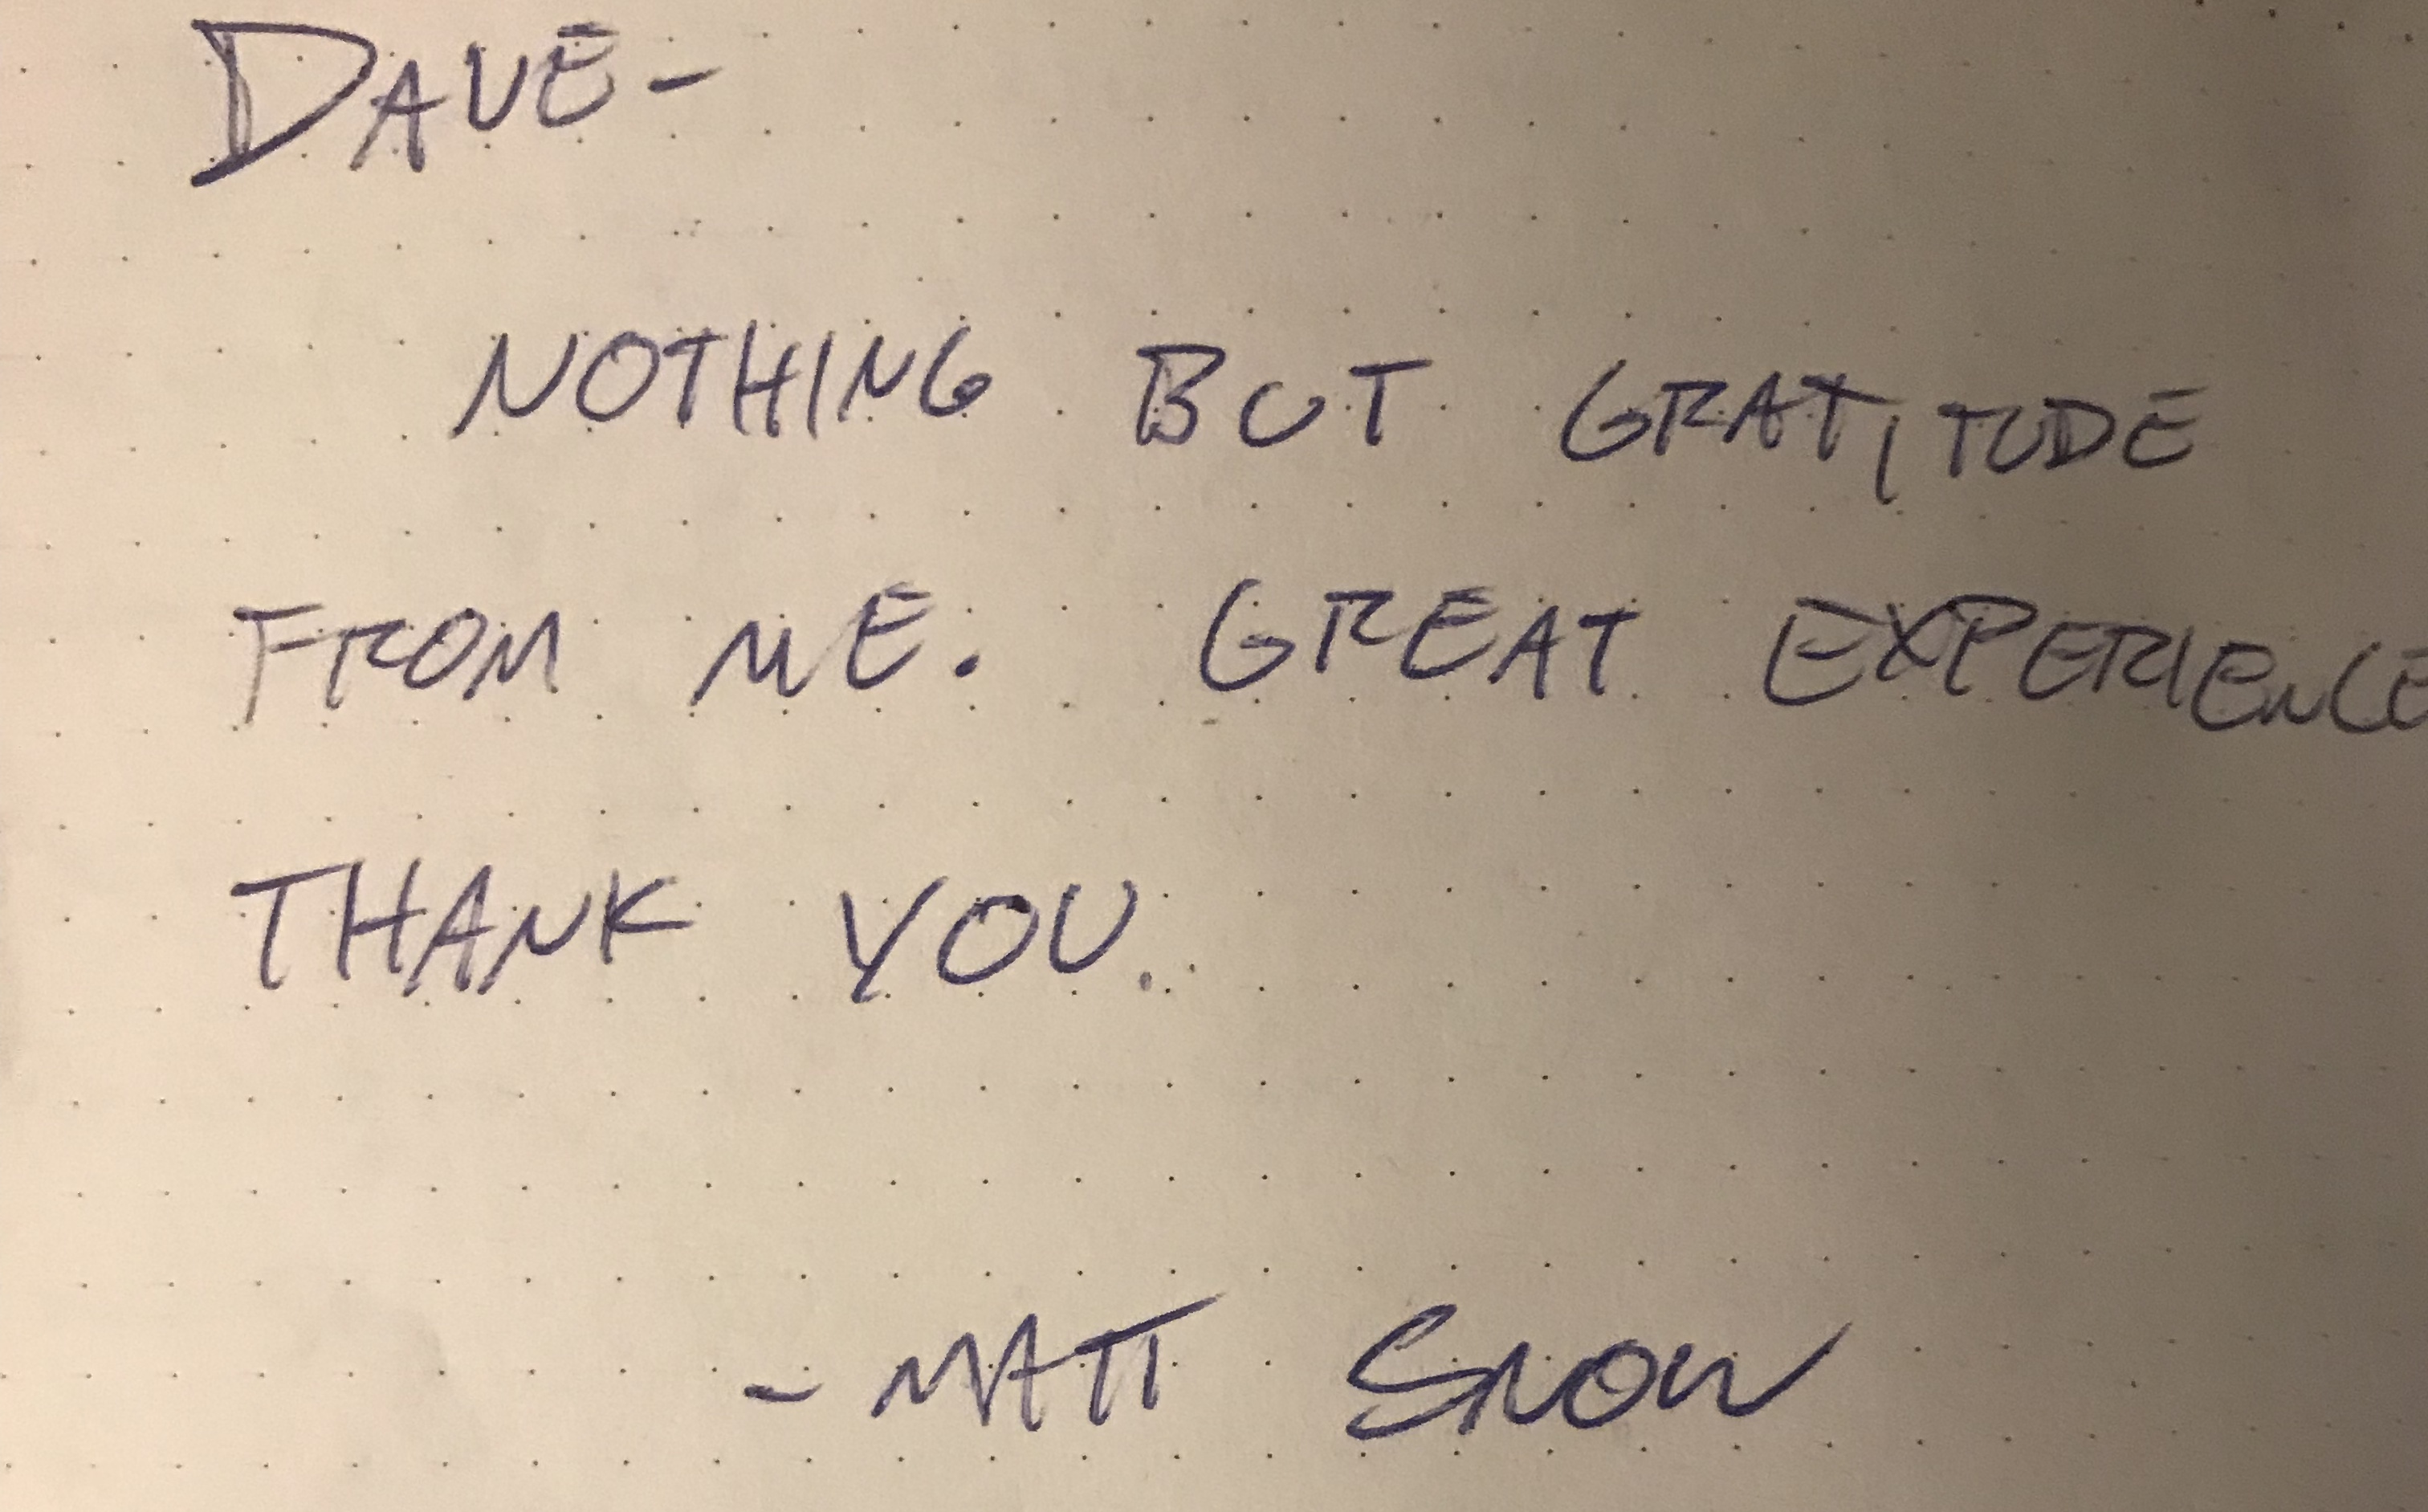 DAVE-
NOTHING BUT GRATITUDE
FROM ME. GREAT EXPERIENCE
THANK YOU.
- MATT SNOW